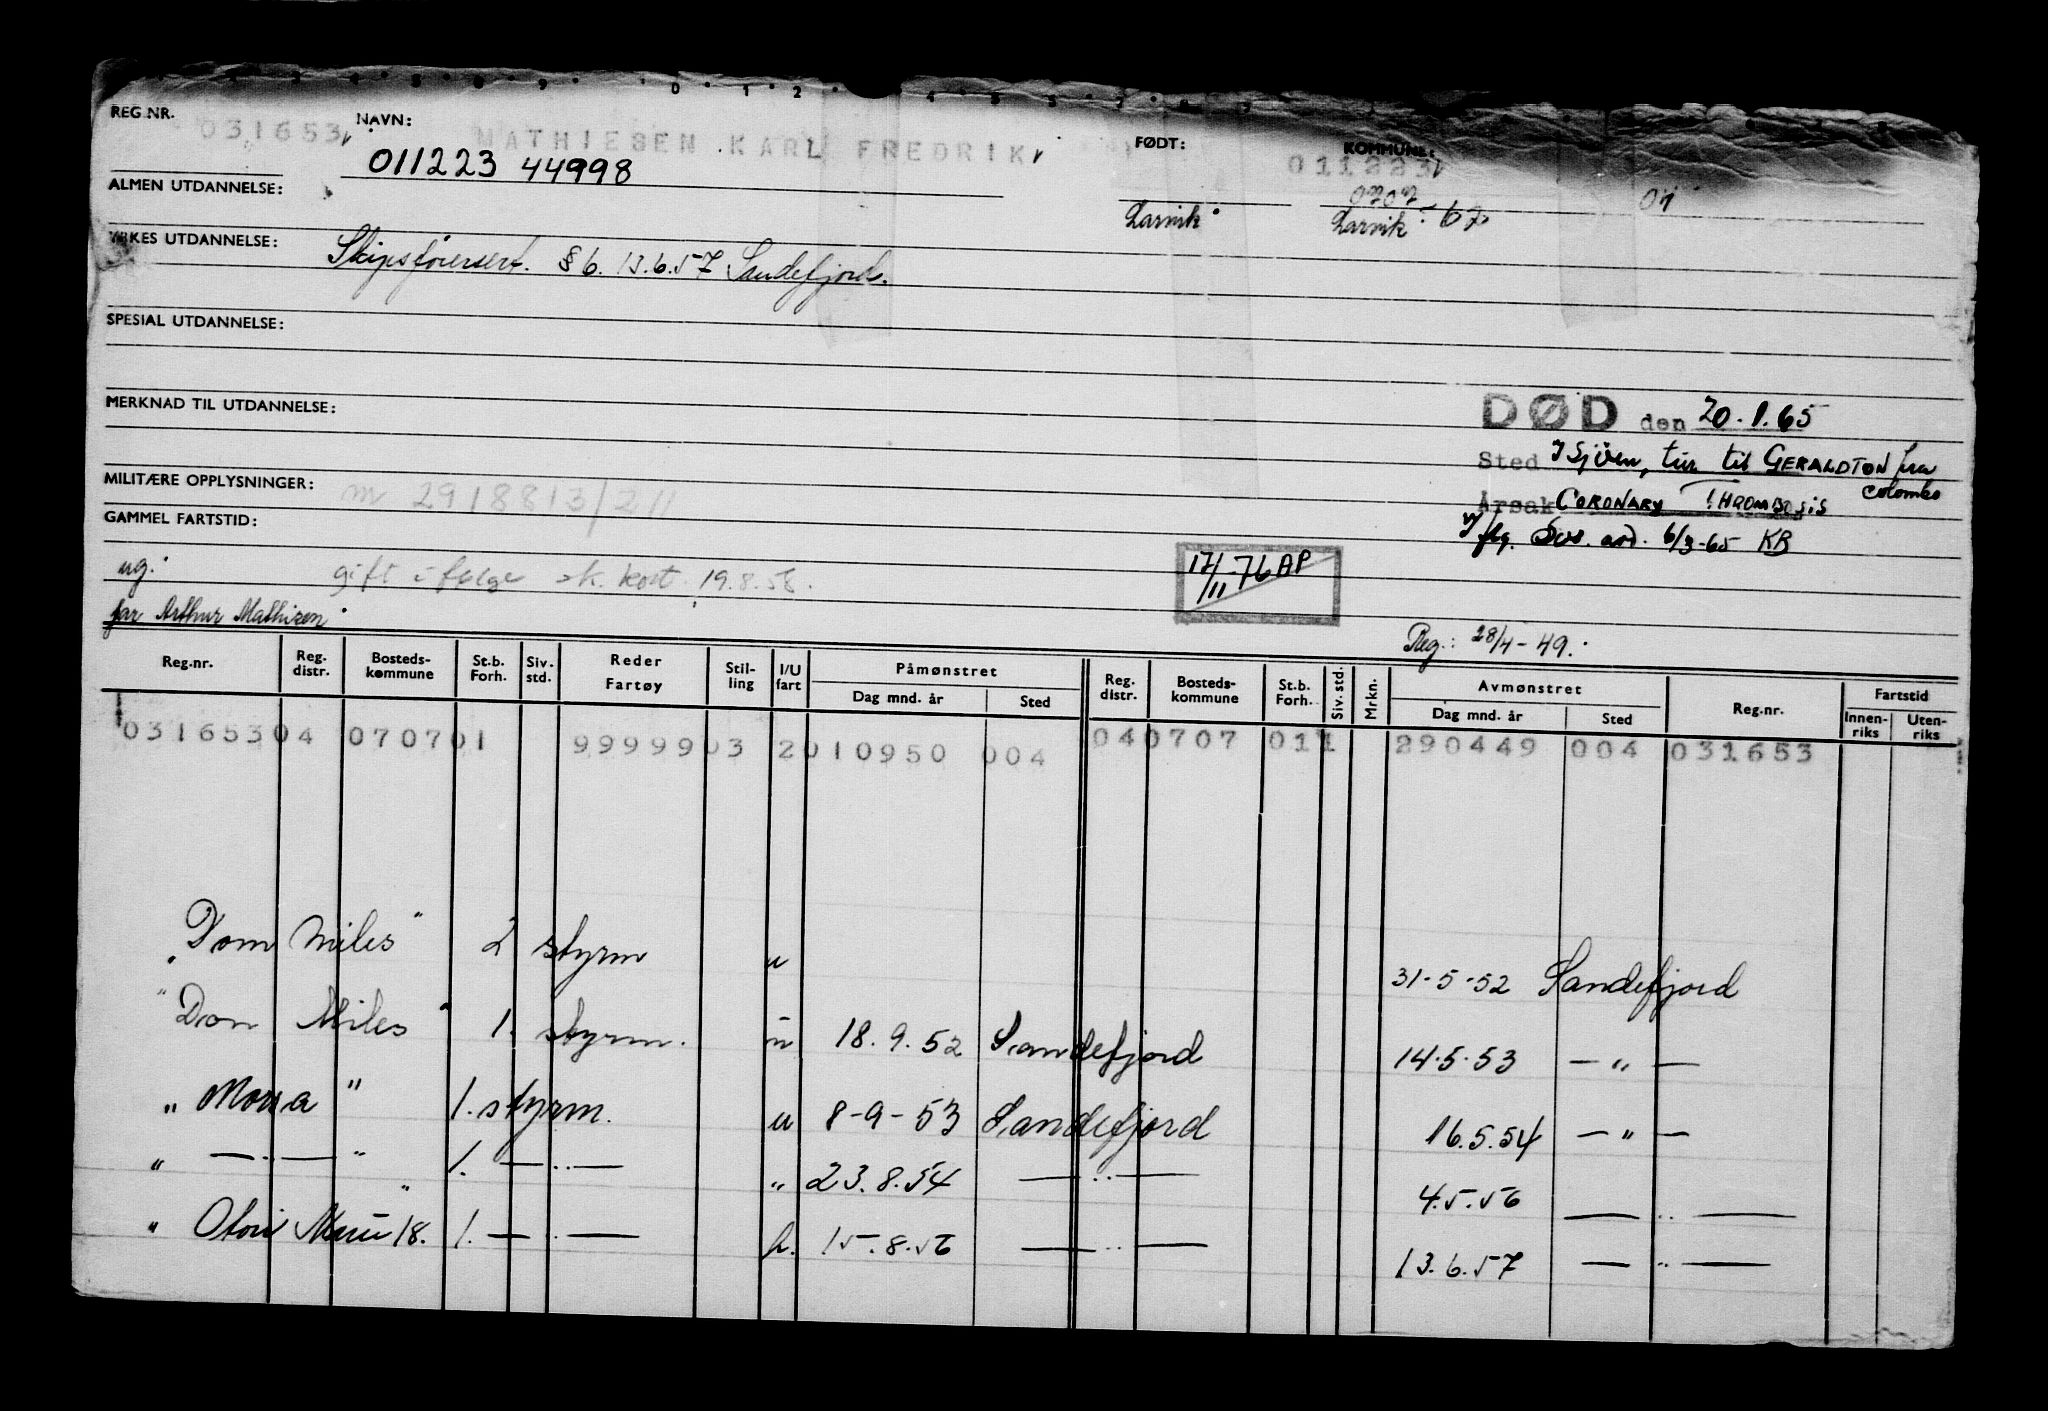 REG.NR. 031653 NAVN: MATHIESEN KARL FREDRIK FØDT: 011223 KOMMUNE:
011223 44998
ALMEN UTDANNELSE: Larvik 0707 Larvik - 67 01
YRKES UTDANNELSE: Skipsførersert. §6. 13.6.57 Sandefjord.
SPESIAL UTDANNELSE:
MERKNAD TIL UTDANNELSE:
DØD den 20.1.65
Sted I Sjöen, tur til GERALDTON fra Colombo
MILITÆRE OPPLYSNINGER: m 2918813/211
Årsak CORONARY THROMBOSIS
GAMMEL FARTSTID:
flg. 6/3-65 KB
ug. gift i følge sk. kort 19.8.56.
17/11-76 AP
far Arthur Mathisen
Reg.: 28/4-49.
Reg.nr. Reg. distr. Bosteds-kommune St.b. Forh. Siv. std. Reder Fartøy Stil-ling I/U fart Påmønstret Dag mnd. år Sted Reg. distr. Bosteds-kommune St.b. Forh. Siv. std. Mrkn. Avmønstret Dag mnd. år Sted Reg.nr. Fartstid Innen-riks Uten-riks
03165304 070701 9999903 2010950 004 040707 011 290449 004 031653
"Dom Miles" 2 styrm u 31-5-52 Sandefjord
"Don Miles" 1. styrm. u 18.9.52 Sandefjord 14.5.53 — " —
" Mona " 1. styrm. u 8-9-53 Sandefjord 16.5.54 — " —
" — .. — " 1. — .. — " 23.8.54 — .. — 4.5.56 — .. —
" 18. " 1. — .. — 15.8.56 — .. — 13.6.57 — .. —